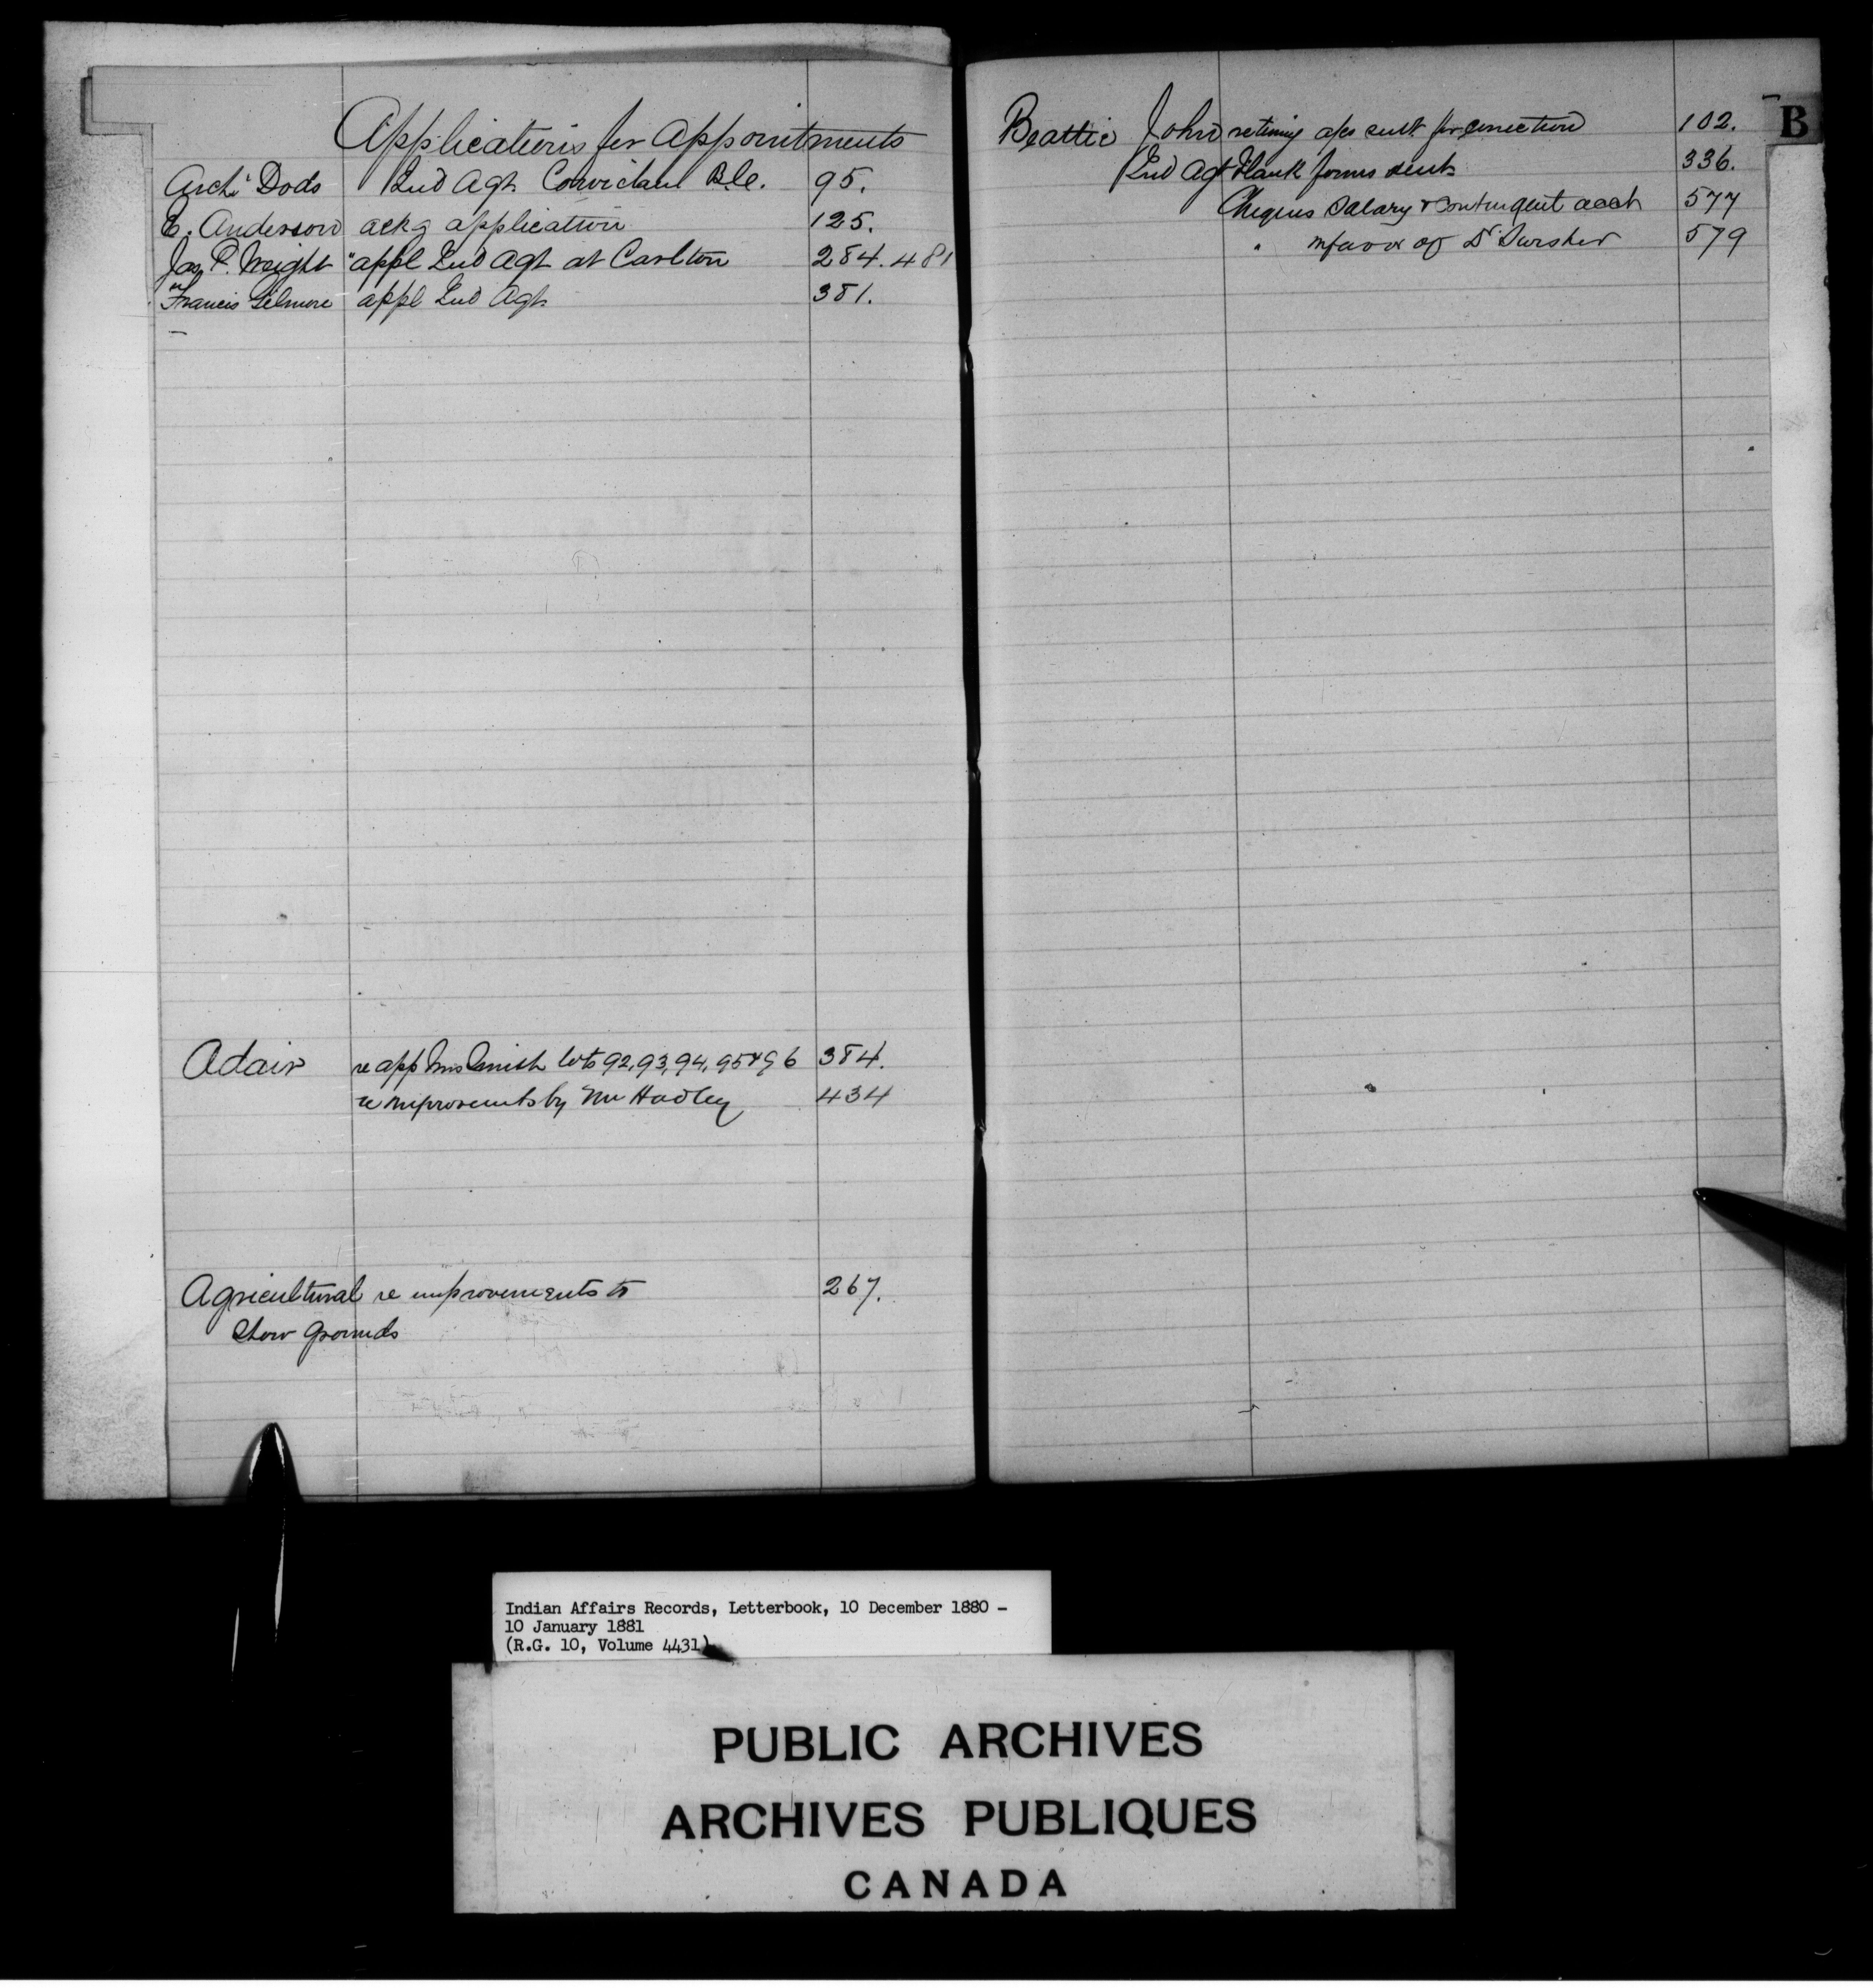 Applications for Appointments
Archd Dods Ind Agt. Cowichan B.C. 95.
E. Anderson ackg application 125.
Jas P. Wright "appl Ind Agt at Carlton 284. 481
Francis Gilmore appl Ind Agt. 381.
Adair re app Mrs Smith lots 92, 93, 94, 95 & 96 384.
re improvements by Mr Hadley 434
Agricultural re improvements to 267.
Show Grounds
B
Beattie John retrning a/cs sent for correction 102.
Ind Agt Blank forms sent 336.
Cheques Salary & Contingent acct 577
" in favor of Dr 579
Indian Affairs Records, Letterbook, 10 December 1880 -
10 January 1881
(R.G. 10, Volume 4431)
PUBLIC ARCHIVES
ARCHIVES PUBLIQUES
CANADA